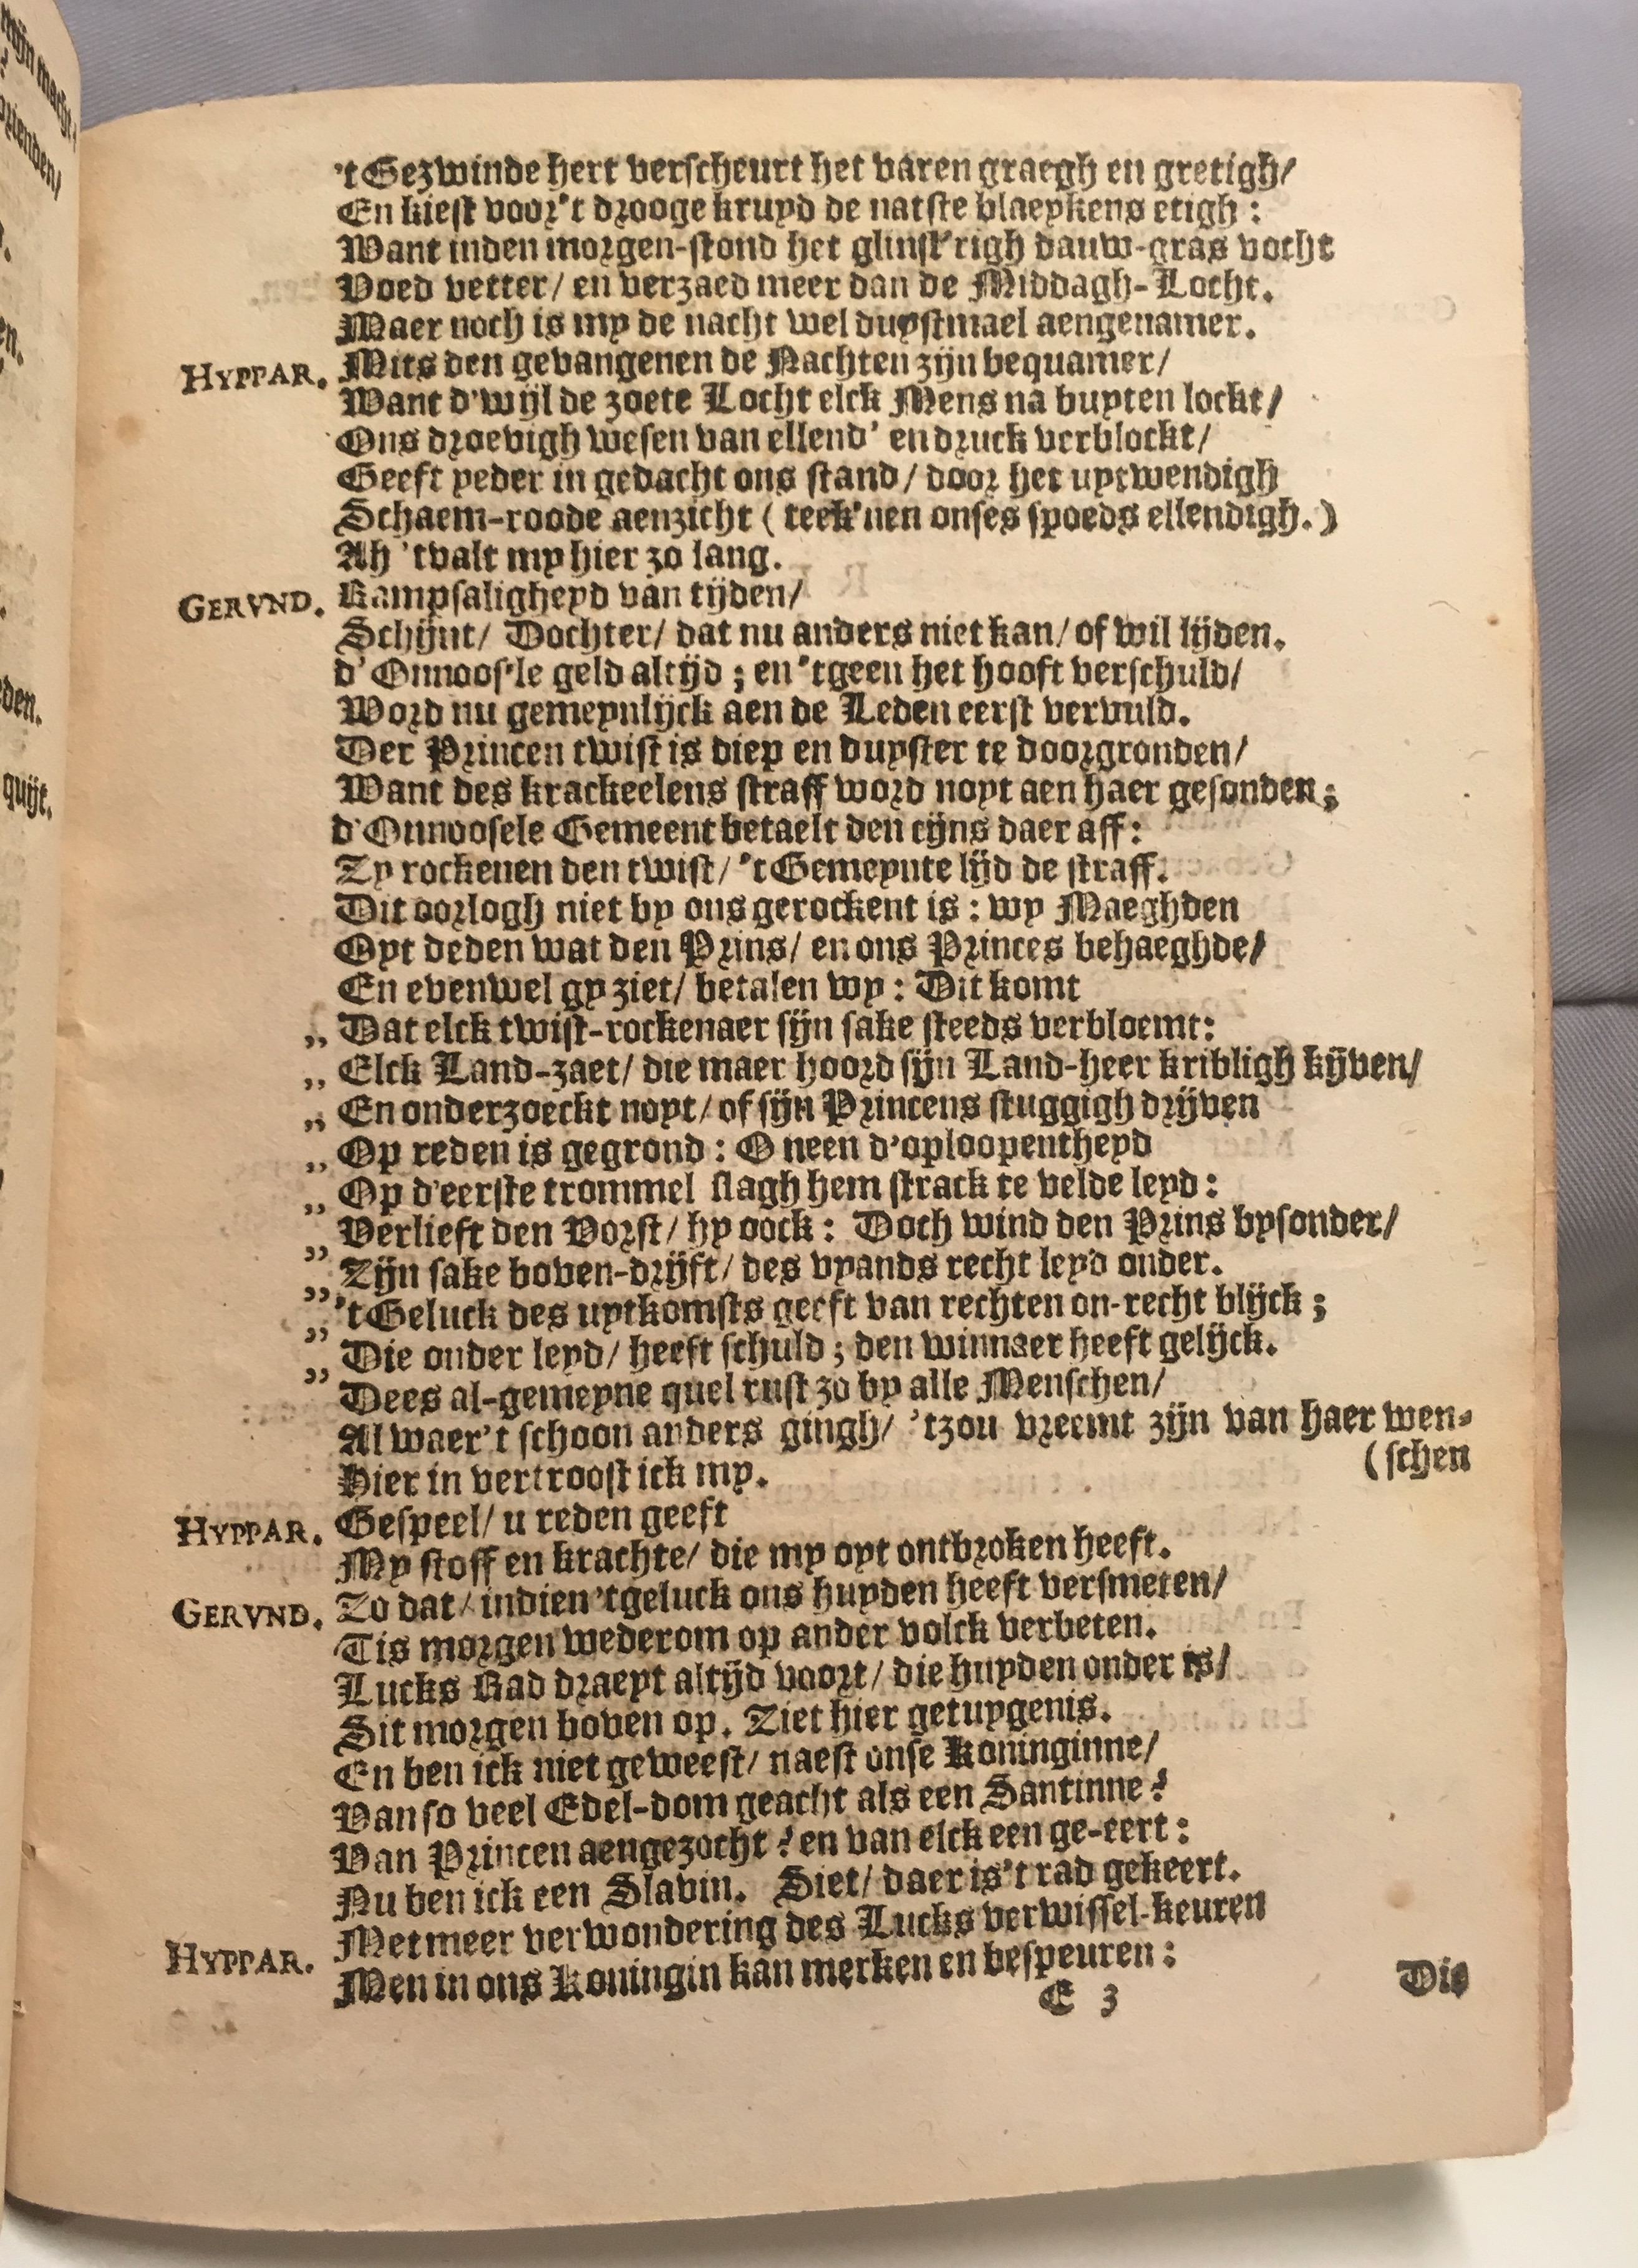 't Gezwinde hert verscheurt het varen graegh en gretigh/
En kiest voor't drooge kruyd de natste blaeykens etigh:
Want inden morgen-stond het glinst'righ dauw-gras vocht
Voed vetter/ en verzaed meer dan de Middagh-Locht.
Maer noch is my de nacht wel duystmael aengenamer.
HYPPAR. Mits den gevangenen de Nachten zijn bequamer/
Want d'wijl de zoete Locht elck Mens na buyten lockt/
Ons droevigh wesen van ellend' en druck verblockt/
Geeft yeder in gedacht ons stand/ door het uytwendigh
Schaem-roode aenzicht (teek'nen onses spoeds ellendigh.)
Ah 'tvalt my hier zo lang.
GERVND. Rampsaligheyd van tijden/
Schijnt/ Dochter/ dat nu anders niet kan/ of wil lijden.
d'Onnoos'le geld altijd; en 'tgeen het hooft verschuld/
Word nu gemeynlijck aen de Leden eerst vervuld.
Der Princen twist is diep en duyster te doorgronden/
Want des krackeelens straff word noyt aen haer gesonden;
d'Onnoosele Gemeent betaelt den cijns daer aff:
Zy rockenen den twist/ 't Gemeynte lijd de straff.
Dit oorlogh niet by ons gerockent is: wy Maeghden
Oyt deden wat den Prins/ en ons Princes behaeghde/
En evenwel gy ziet/ betalen wy: Dit komt
„ Dat elck twist-rockenaer sijn sake steeds verbloemt:
„ Elck Land-zaet/ die maer hoord sijn Land-heer kribligh kijven/
„ En onderzoeckt noyt/ of sijn Princens stuggigh drijven
„ Op reden is gegrond: O neen d'oploopentheyd
„ Op d'eerste trommel slagh hem strack te velde leyd:
„ Verlieft den Vorst/ hy oock: Doch wind den Prins bysonder/
„ Zijn sake boven-drijft/ des vyands recht leyd onder.
„ 't Geluck des uytkomsts geeft van rechten on-recht blijck;
„ Die onder leyd/ heeft schuld; den winnaer heeft gelijck.
Dees al-gemeyne quel rust zo by alle Menschen/
Al waer't schoon anders gingh/ 'tzou vreemt zijn van haer wen-
(schen
Hier in vertroost ick my.
HYPPAR. Gespeel/ u reden geeft
My stoff en krachte/ die my oyt ontbroken heeft.
GERVND. Zo dat/ indien 'tgeluck ons huyden heeft versmeten/
Tis morgen wederom op ander volck verbeten.
Lucks Rad draeyt altijd voort/ die huyden onder is/
Sit morgen boven op. Ziet hier getuygenis.
En ben ick niet geweest/ naest onse Koninginne/
Van so veel Edel-dom geacht als een Santinne?
Van Princen aengezocht? en van elck een ge-eert:
Nu ben ick een Slavin. Siet/ daer is't rad gekeert.
HYPPAR. Met meer verwondering des Lucks verwissel-keuren
Men in ons Koningin kan merken en bespeuren:
E 3
Die